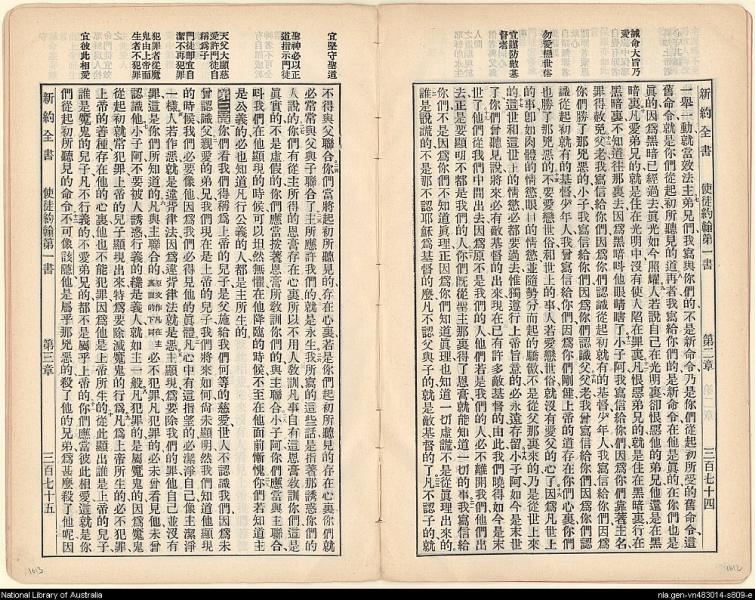 誡命大旨乃
愛
勿愛戀世俗
宜謹防敵基
督者
新約全書 使徒約翰第一書 第二章 三百七十四
一舉一動就當效法主弟兄們我寫與你們的不是新命令乃是你們從起初所受的舊命令這
舊命令就是你們從起初所聽見的道再者我寫給你們的是新命令在他是眞的在你們也是
眞的因爲黑暗已經過去眞光如今照耀人若說自己在光明裏卻恨惡他的弟兄他還是在黑
暗裏凡愛弟兄的就是住在光明中沒有使人陷在罪裏凡恨惡弟兄的就是住在黑暗裏行在
黑暗裏不知道往那裏去因爲黑暗叫他眼睛瞎了小子阿我寫信給你們因爲你們靠著主名
罪得赦免父老我寫信給你們因爲你們認識從起初就有的基督少年人我寫信給你們因爲
你們勝了那兇惡的小子我寫信給你們因爲你們認識父父老我曾寫信給你們因爲你們認
識從起初就有的基督少年人我曾寫信給你們因爲你們剛健上帝的道存在你們心裏你們
也勝了那兇惡的不要愛戀世俗和世上的事人若愛戀世俗就沒有愛父的心了因爲凡世上
的事卽如肉體的情慾眼目的情慾並隨勢分而起的驕傲不是從父那裏來的乃是從世上來
的這世和這世上的情慾必都要過去惟獨遵行上帝旨意的必永遠存留小子阿如今是末世
了你們曾聽見說將來必有敵基督的出來現在已有許多敵基督的自此我們曉得如今是末
世了他們從我們中間出去因爲原不是我們的人他們若是我們的人必不離開我們他們出
去正是要顯明不都是我們的人你們旣從聖主那裏得了恩膏就能知道一切的事我寫信給
你們不是因爲你們不知道眞理正因爲你們知道眞理也知道一切虛謊不是從眞理出來的
誰是說謊的不是那不認耶穌爲基督的麼凡不認父與子的就是敵基督的了凡不認子的就
宜堅守聖道
聖神必以正
道指示門徒
天父大顯慈
愛許門徒自
稱爲子
門徒卽宜自
潔不再犯罪
犯罪者從魔
鬼由上帝而
生者不犯罪
宜彼此相愛
不得與父聯合你們當將起初所聽見的存在心裏若是你們起初所聽見的存在心裏你們就
必常常與父與子聯合了主所應許我們的就是永生我所寫的這些話是指著那誘惑你們的
人說的你們有從主所得的恩膏存在心裏所以不用人敎訓凡事自有這恩膏敎訓你們這是
眞實的不是虛假的你們應當按著恩膏所敎訓你們的與主聯合小子阿你們應當與主聯合
叫我們在他顯現的時候可以坦然無懼在他降臨的時候不至在他面前慚愧你們若知道主
是公義的必也知道凡行公義的人都是主所生的
第三章 你們看我們得稱爲上帝的兒子是父施給我們何等的慈愛世人不認識我們因爲未
曾認識父親愛的弟兄我們現在是上帝的兒子我們將來如何尚未顯明然我們知道他顯現
的時候我們必要像他因爲我們必得見他的眞體凡心中有這指望的必潔淨自己像主潔淨
一樣人若作惡就是違背律法因爲違背律法就是惡主顯現爲要除我們的罪他自己並沒有
罪這是你們所知道的凡與主聯合的必不犯罪凡犯罪的必未曾看見他未曾
認識他小子阿不要被人誘惑行義的纔是義人就如主一般凡犯罪的是屬魔鬼的因爲魔鬼
從起初就常犯罪上帝的兒子顯現出來特爲要除滅魔鬼的行爲凡爲上帝所生的必不犯罪
上帝的善種存在他的心裏他也不能犯罪因爲他是上帝所生的從此顯出誰是上帝的兒子
誰是魔鬼的兒子凡不行義的不愛弟兄的都不是屬乎上帝的你們應當彼此相愛這就是你
們從起初所聽見的命令不可像該隱他是屬乎那兇惡的殺了他的兄弟爲甚麼殺了他呢因
新約全書 使徒約翰第一書 第三章 三百七十五
National Library of Australia
nla.gen-vn483014-s809-e